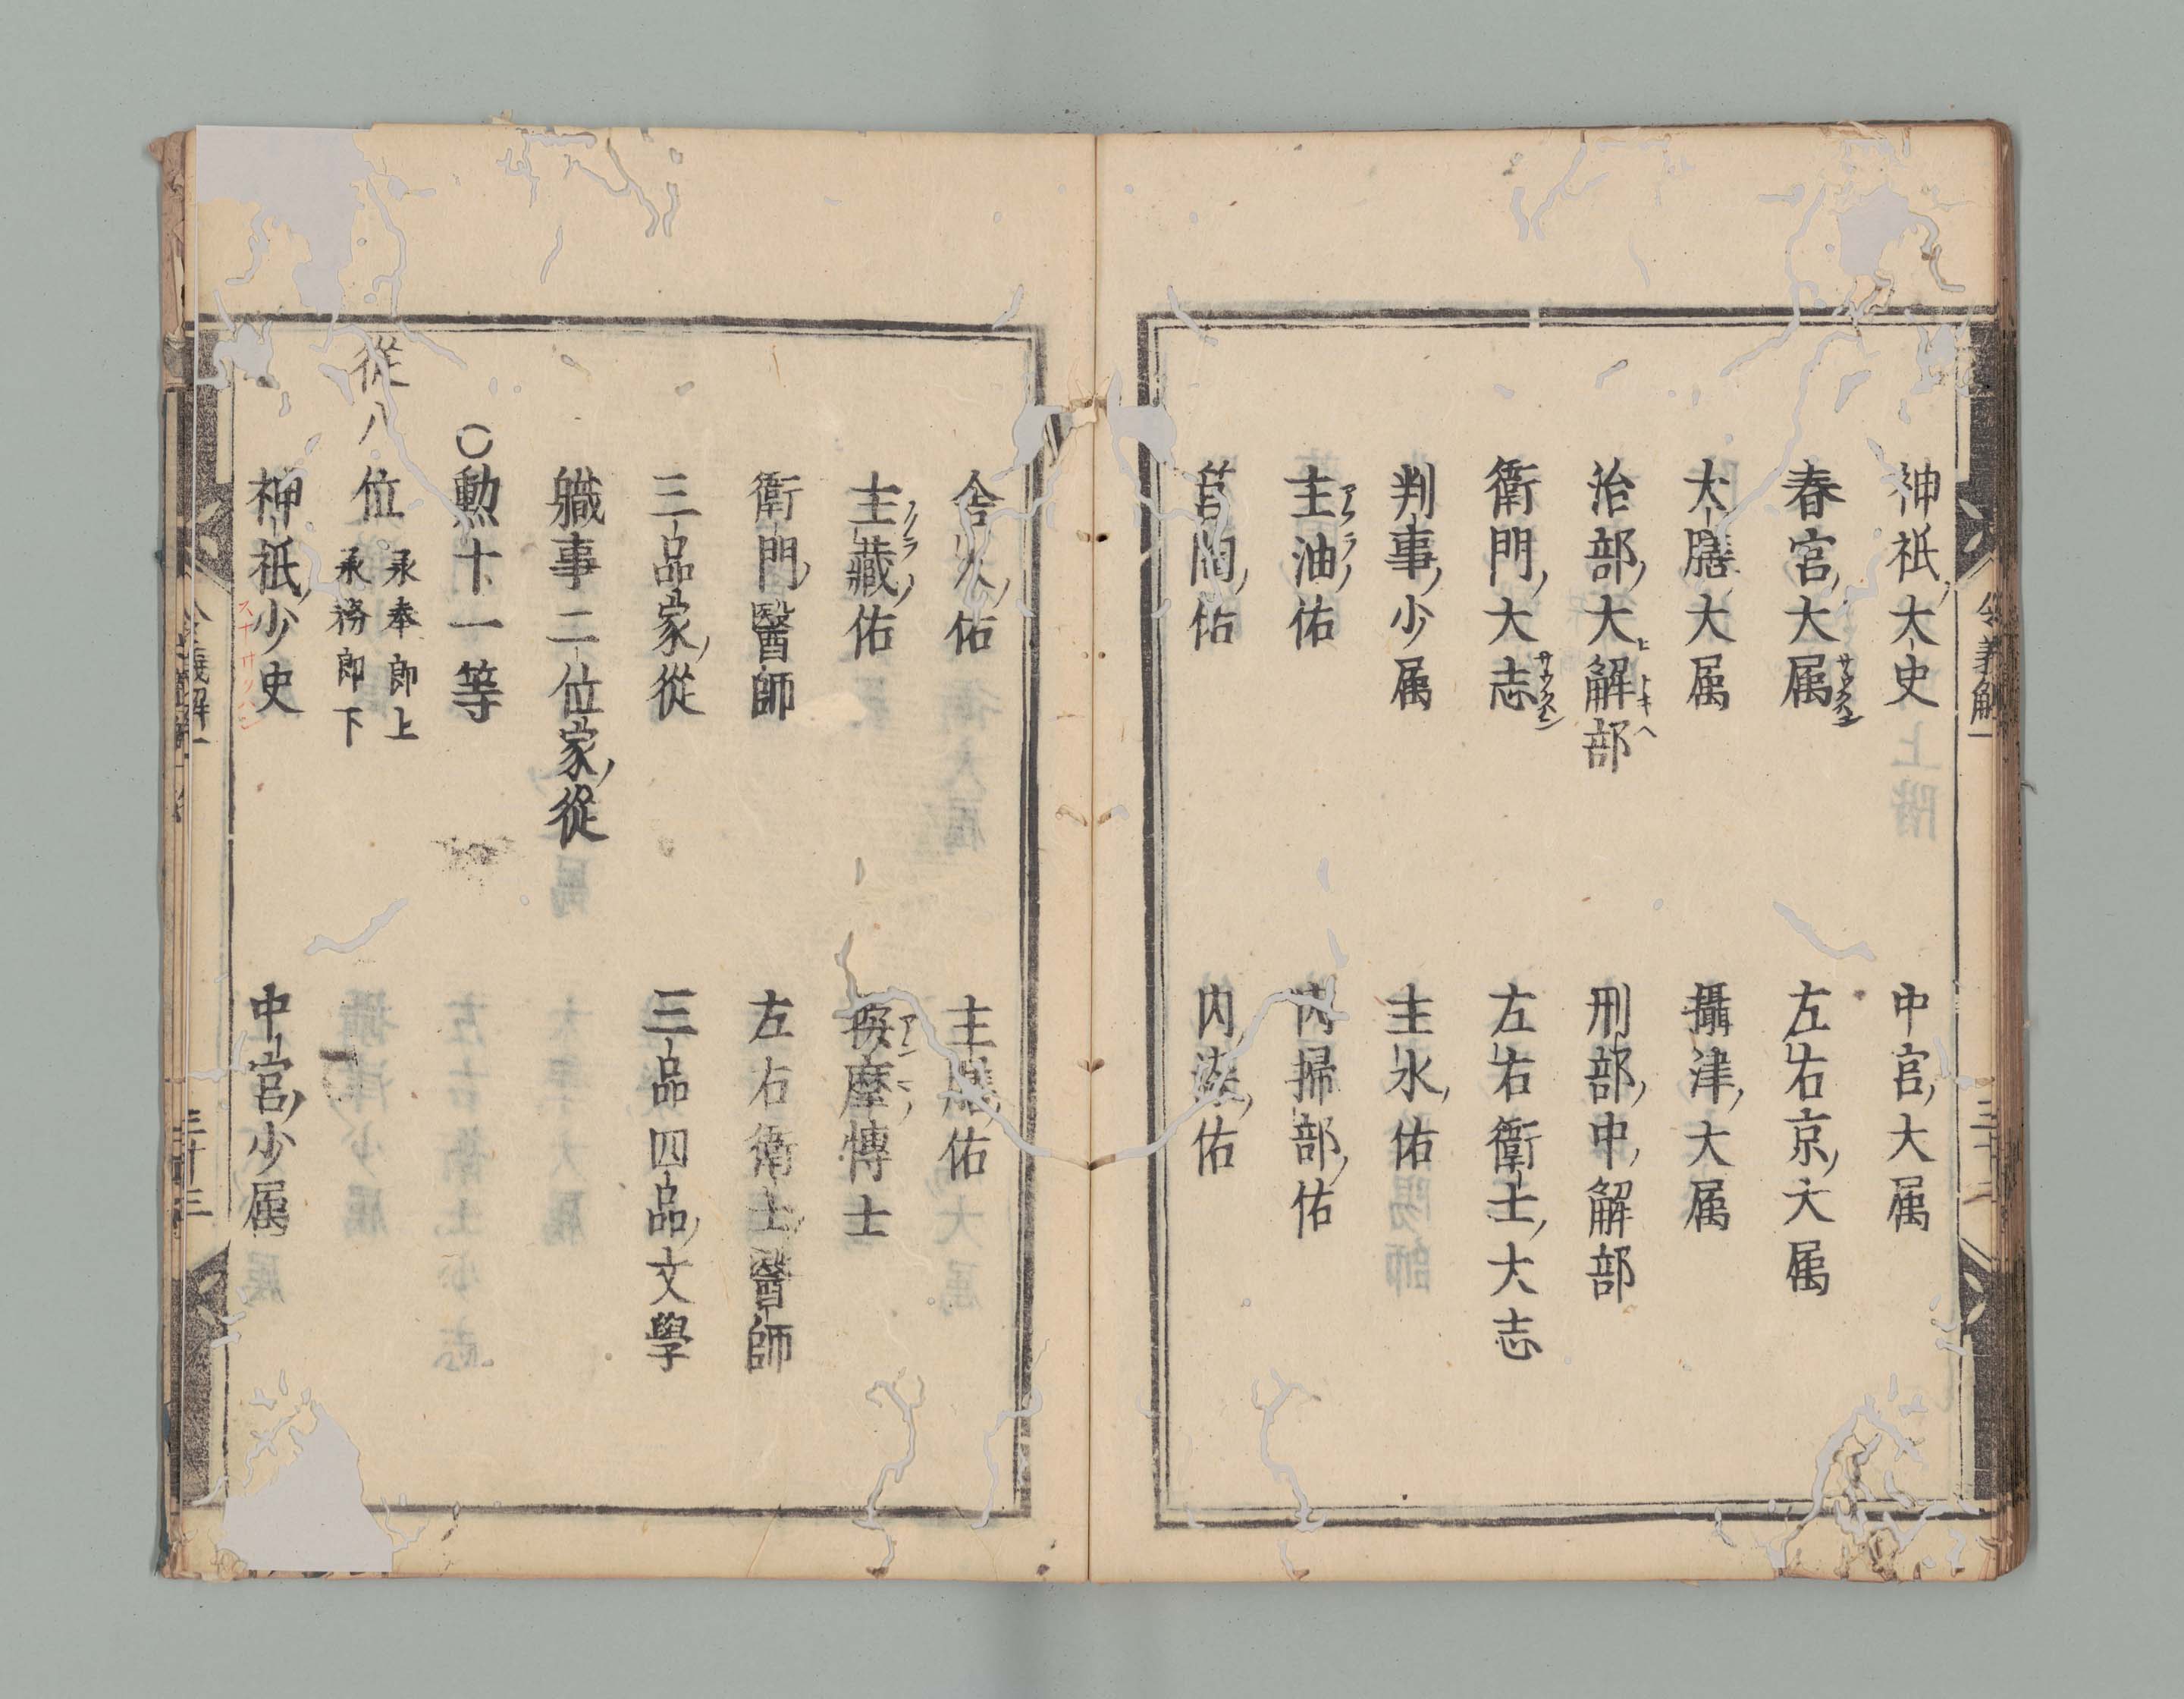 神祇大史　中宮大属
春宮大属　左右京大属
大膳大属　攝津大属
治部大解部　刑部中解部
衛門大志　左右衛士大志
判事少属　主水佑
主油佑　内掃部佑
筥陶佑　内染佑
舎人佑　主膳佑
主藏佑　按摩博士
衛門醫師　左右衛士醫師
三品家從　三品四品文學
職事二位家從
○勲十一等
從八位　承奉郎上
承務郎下
神祇少史　中宮少属
令義解一